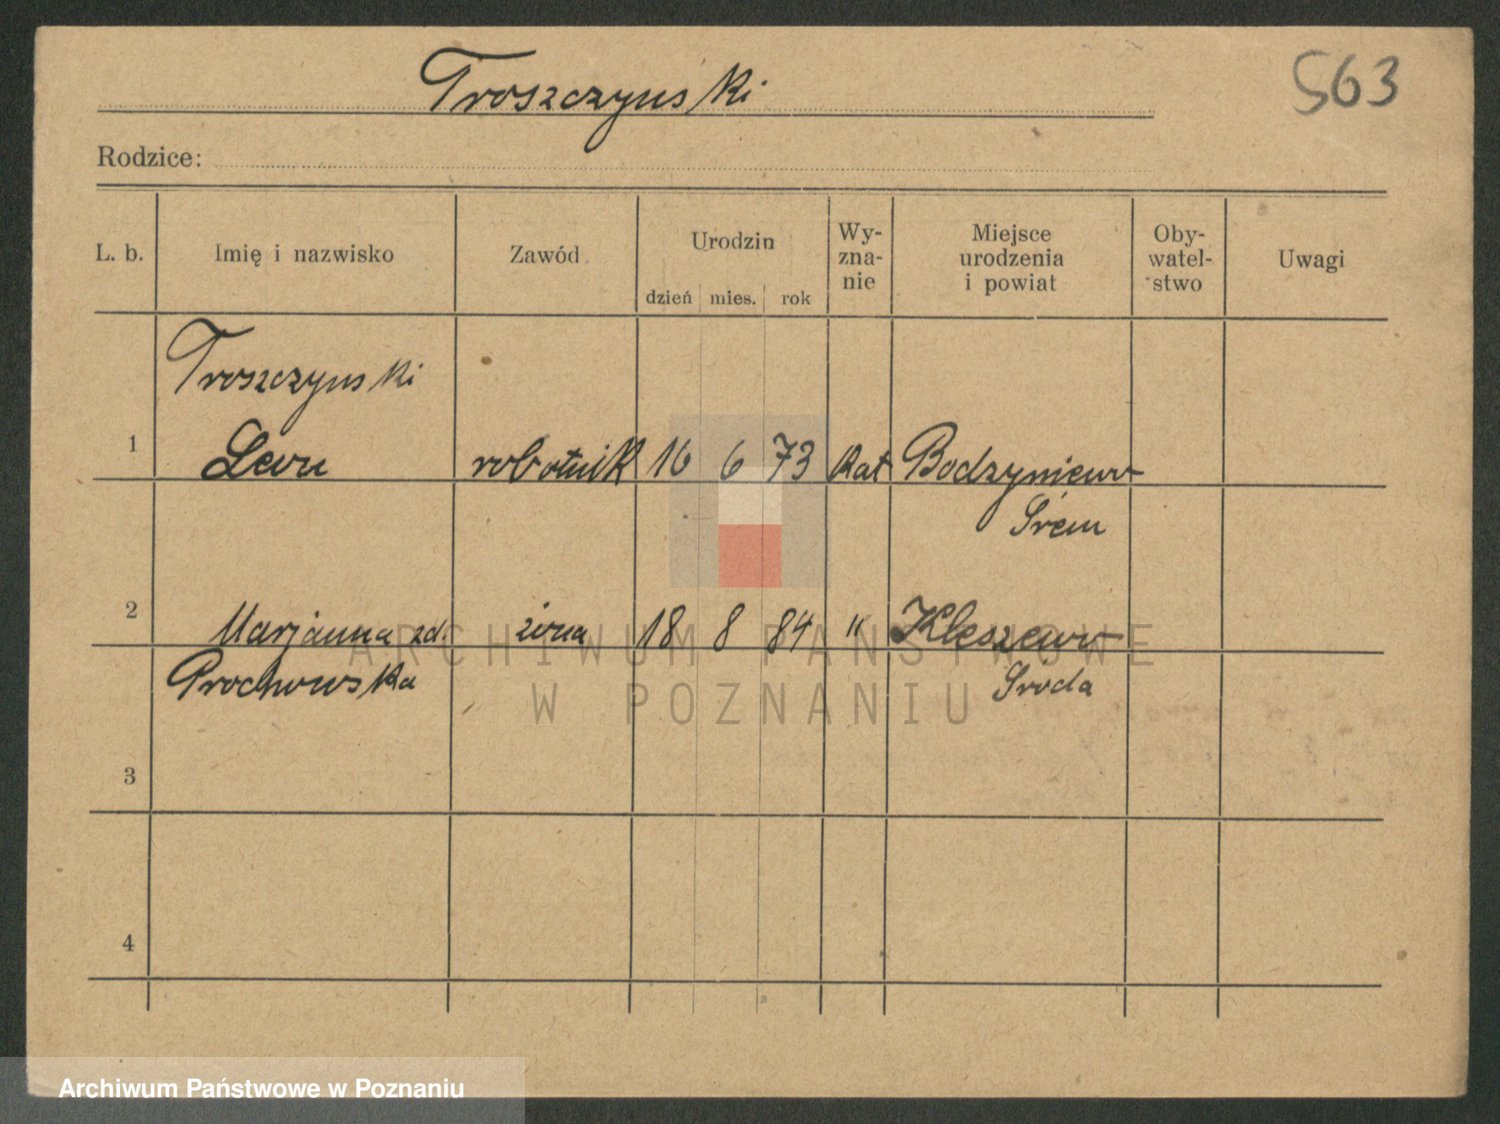 Troszczynski
563
Rodzice:
L. b.
Imię i nazwisko
Zawód
Urodzin
dzień
mies.
rok
Wy-
zna-
nie
Miejsce
urodzenia
i powiat
Oby-
watel-
stwo
Uwagi
Troszczynski
1
Leon
robotnik
16
6
73
Kat
Bodzyniewo
Śrem
2
Marjanna zd.
żona
18
8
84
"
Kleszewo
Prochowska
Sroda
3
4
ARCHIWUM PAŃSTWOWE
W POZNANIU
Archiwum Państwowe w Poznaniu